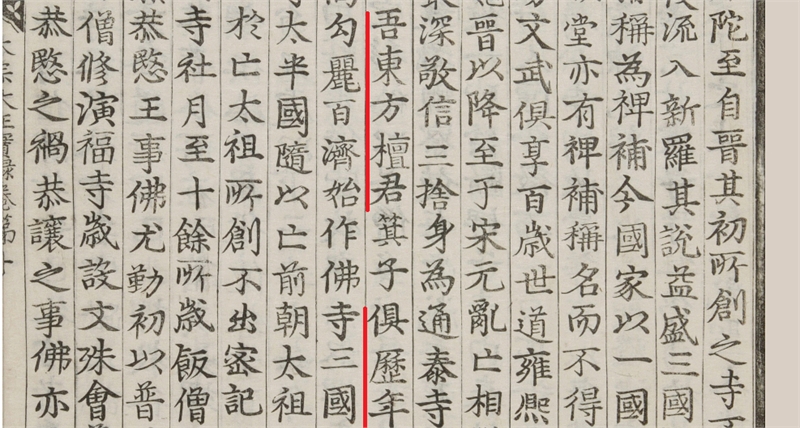 陀至自晉其初所創之寺
流入新羅其說益盛三國
稱為裨補今國家以一國
堂亦有裨補稱名而不得
文武俱享百歲世道雍熙
晉以降至于宋元亂亡相
深敬信三捨身為通泰寺
吾東方檀君箕子俱歷年
勾麗百濟始作佛寺三國
太半國隨以亡前朝太祖
於亡太祖所創不出密記
寺社月至十餘所歲飯僧
恭愍王事佛尤勤初以普
僧修演福寺歲設文殊會
恭愍之禍恭讓之事佛亦
宗大王實錄卷第十